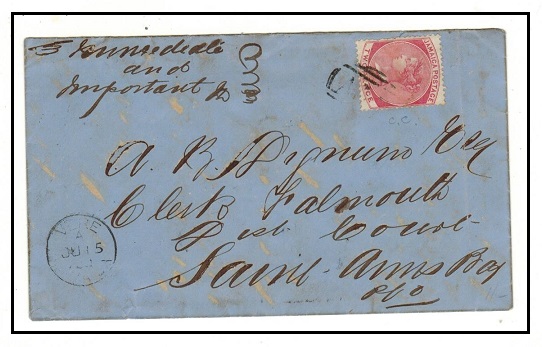 Immediate
and
Important
JAMAICA POSTAGE
C.C.
A. B. Dignum Esq
Clerk Falmouth
Dist Court
Saint Anns Bay
JU 15